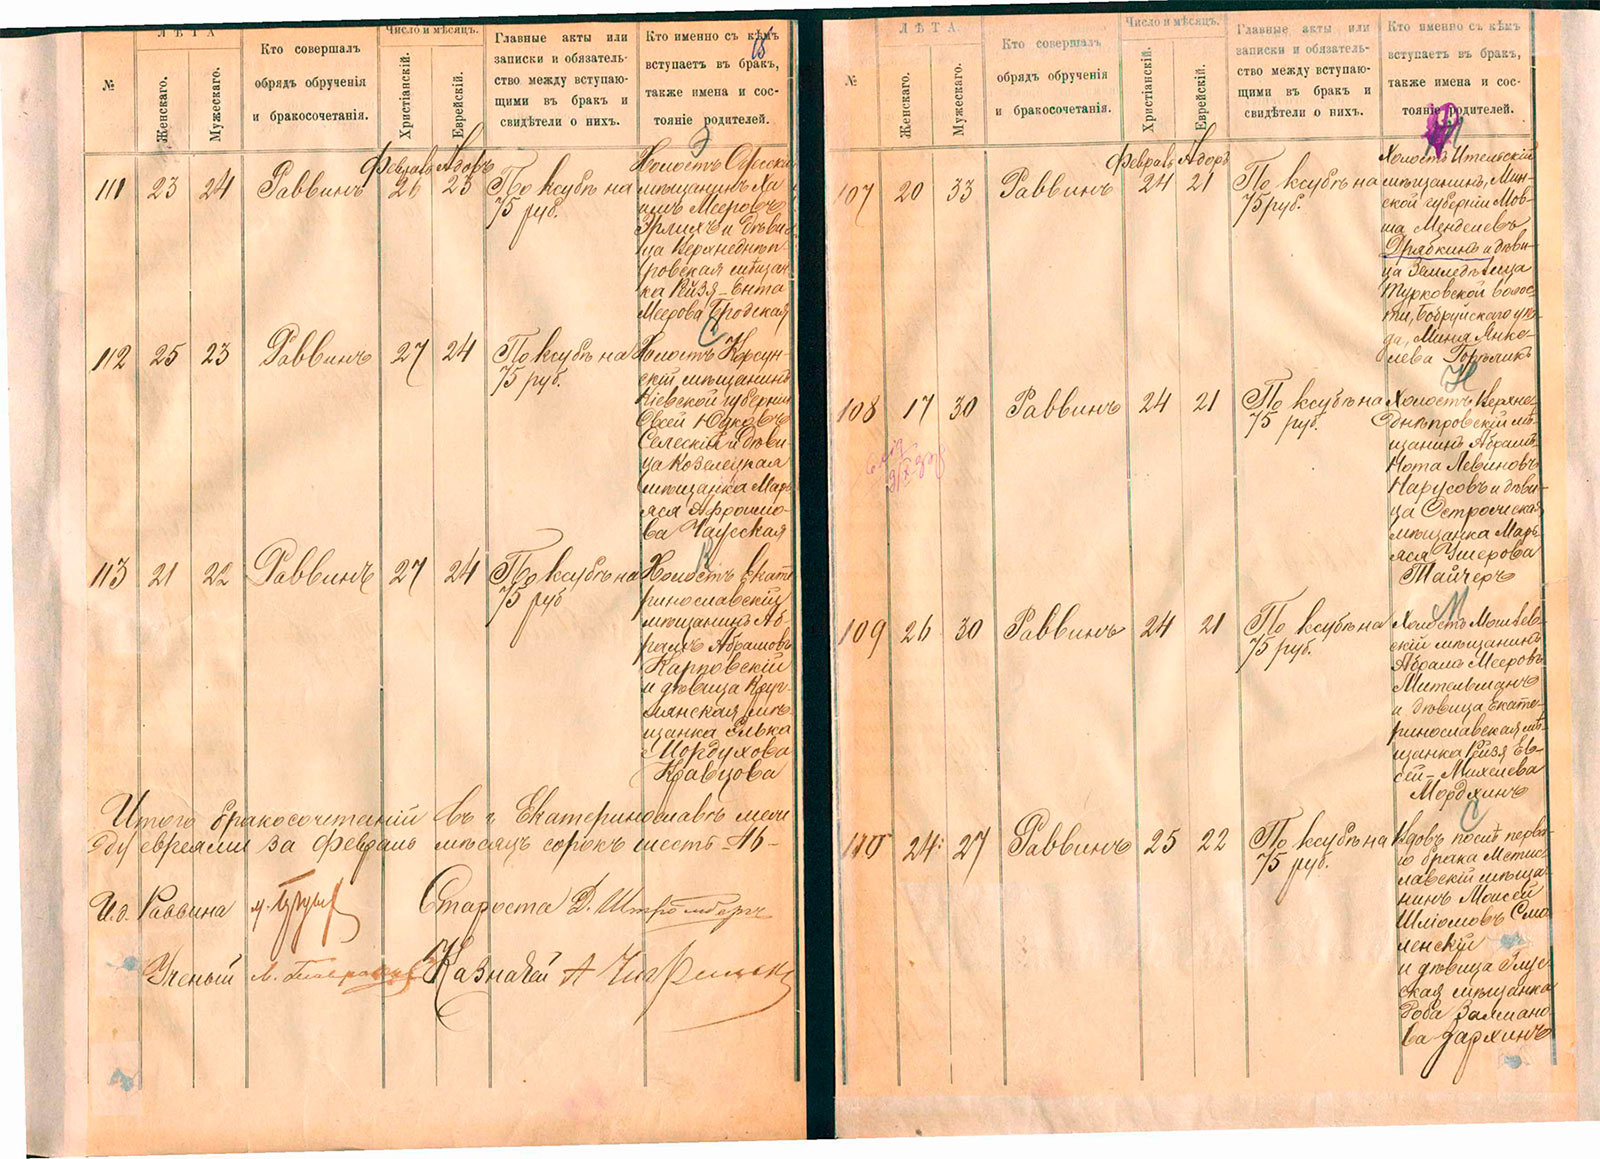 ЛѢТА
Число и мѣсяцъ.
№
Женскаго.
Мужескаго.
Кто совершалъ
обрядъ обрученія
и бракосочетанія.
Христіанскій.
Еврейскій.
Главные акты или
записки и обязатель-
ство между вступаю-
щими въ бракъ и
свидѣтели о нихъ.
Кто именно съ кѣмъ
вступаетъ въ бракъ,
также имена и сос-
тояніе родителей.
Э
Февраль Адоръ
111 23 24 Раввинъ 26 23 По ксубѣ на
75 руб.
Холостъ Одесскій
мѣщанинъ Ха-
имъ Мееровъ
Эрлихъ и дѣви-
ца Верхнеднѣп-
ровская мѣщан-
ка Рейзя-Ента
Меерова Бродская
С
112 25 23 Раввинъ 27 24 По ксубѣ на
75 руб.
Холостъ Корсун-
скій мѣщанинъ
Кіевской губерніи
Овсей
и дѣви-
ца Козелецкая
мѣщанка Марь-
яся Афроимо-
ва Чаусская
К
113 21 22 Раввинъ 27 24 По ксубѣ на
75 руб
Холостъ Екате-
ринославскій
мѣщанинъ Аб-
рамъ Абрамовъ
Карповскій
и дѣвица Круг-
лянская мѣ-
щанка Элька
Мордухова
Кравцова
Итого бракосочетаній въ г. Екатеринославѣ меж-
ду евреями за февраль мѣсяцъ сорокъ шесть -46-
И.д. Раввина
Староста Д. Штромбергъ
Ученый
Казначей А
ЛѢТА.
Число и мѣсяцъ.
№
Женскаго.
Мужескаго.
Кто совершалъ
обрядъ обрученія
и бракосочетанія.
Христіанскій.
Еврейскій.
Главные акты или
записки и обязатель-
ство между вступаю-
щими въ бракъ и
свидѣтели о нихъ.
Кто именно съ кѣмъ
вступаетъ въ бракъ,
также имена и сос-
тояніе родителей.
Февраль Адоръ
107 20 33 Раввинъ 24 21 По ксубѣ на
75 руб.
Холостъ
мѣщанинъ, Мин-
ской губерніи Мов-
ша Менделевъ
Дрябкинъ и дѣви-
ца Земледѣлица
Турковской волос-
ти, Бобруйскаго уѣз-
да, Мина Янке-
лева Гореликъ
Н
108 17 30 Раввинъ 24 21 По ксубѣ на
75 руб.
Холостъ Верхне-
днѣпровскій мѣ-
щанинъ Абрамъ
Нота Левиновъ
Нарусовъ и дѣви-
ца
мѣщанка Марь-
яся Ушерова
Тайчеръ
М
109 26 30 Раввинъ 24 21 По ксубѣ на
75 руб.
Холостъ
мѣщанинъ
Абрамъ Мееровъ
Мительманъ
и дѣвица Екате-
ринославская мѣ-
щанка Рейзя Ев-
сей-Михелева
Мордхинъ
С
110 24 27 Раввинъ 25 22 По ксубѣ на
75 руб.
Вдовъ послѣ перва-
го брака Мстис-
лавскій мѣща-
нинъ Моисей
Шліомовъ Смо-
ленскій
и дѣвица Глус-
ская мѣщанка
Роба Залмано-
ва Зархинъ